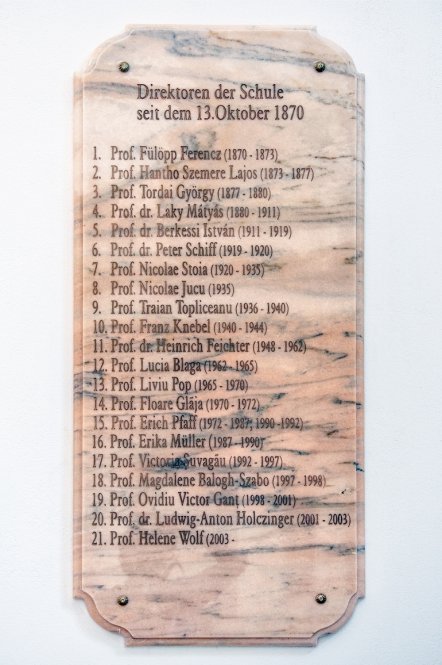 Direktoren der Schule
seit dem 13.Oktober 1870
1. Prof. Fülöpp Ferencz (1870 - 1873)
2. Prof. Hantho Szemere Lajos (1873 - 1877)
3. Prof. Tordai György (1877 - 1880)
4. Prof. dr. Laky Mátyás (1880 - 1911)
5. Prof. dr. Berkessi István (1911 - 1919)
6. Prof. dr. Peter Schiff (1919 - 1920)
7. Prof. Nicolae Stoia (1920 - 1935)
8. Prof. Nicolae Jucu (1935)
9. Prof. Traian Topliceanu (1936 - 1940)
10. Prof. Franz Knebel (1940 - 1944)
11. Prof. dr. Heinrich Feichter (1948 - 1962)
12. Prof. Lucia Blaga (1962 - 1965)
13. Prof. Liviu Pop (1965 - 1970)
14. Prof. Floare Glăja (1970 - 1972)
15. Prof. Erich Pfaff (1972 - 1987; 1990 -1992)
16. Prof. Erika Müller (1987 -1990)
17. Prof. Victoria Șuvagău (1992 - 1997)
18. Prof. Magdalene Balogh-Szabo (1997 - 1998)
19. Prof. Ovidiu Victor Ganț (1998 - 2001)
20. Prof. dr. Ludwig-Anton Holczinger (2001 - 2003)
21. Prof. Helene Wolf (2003 -